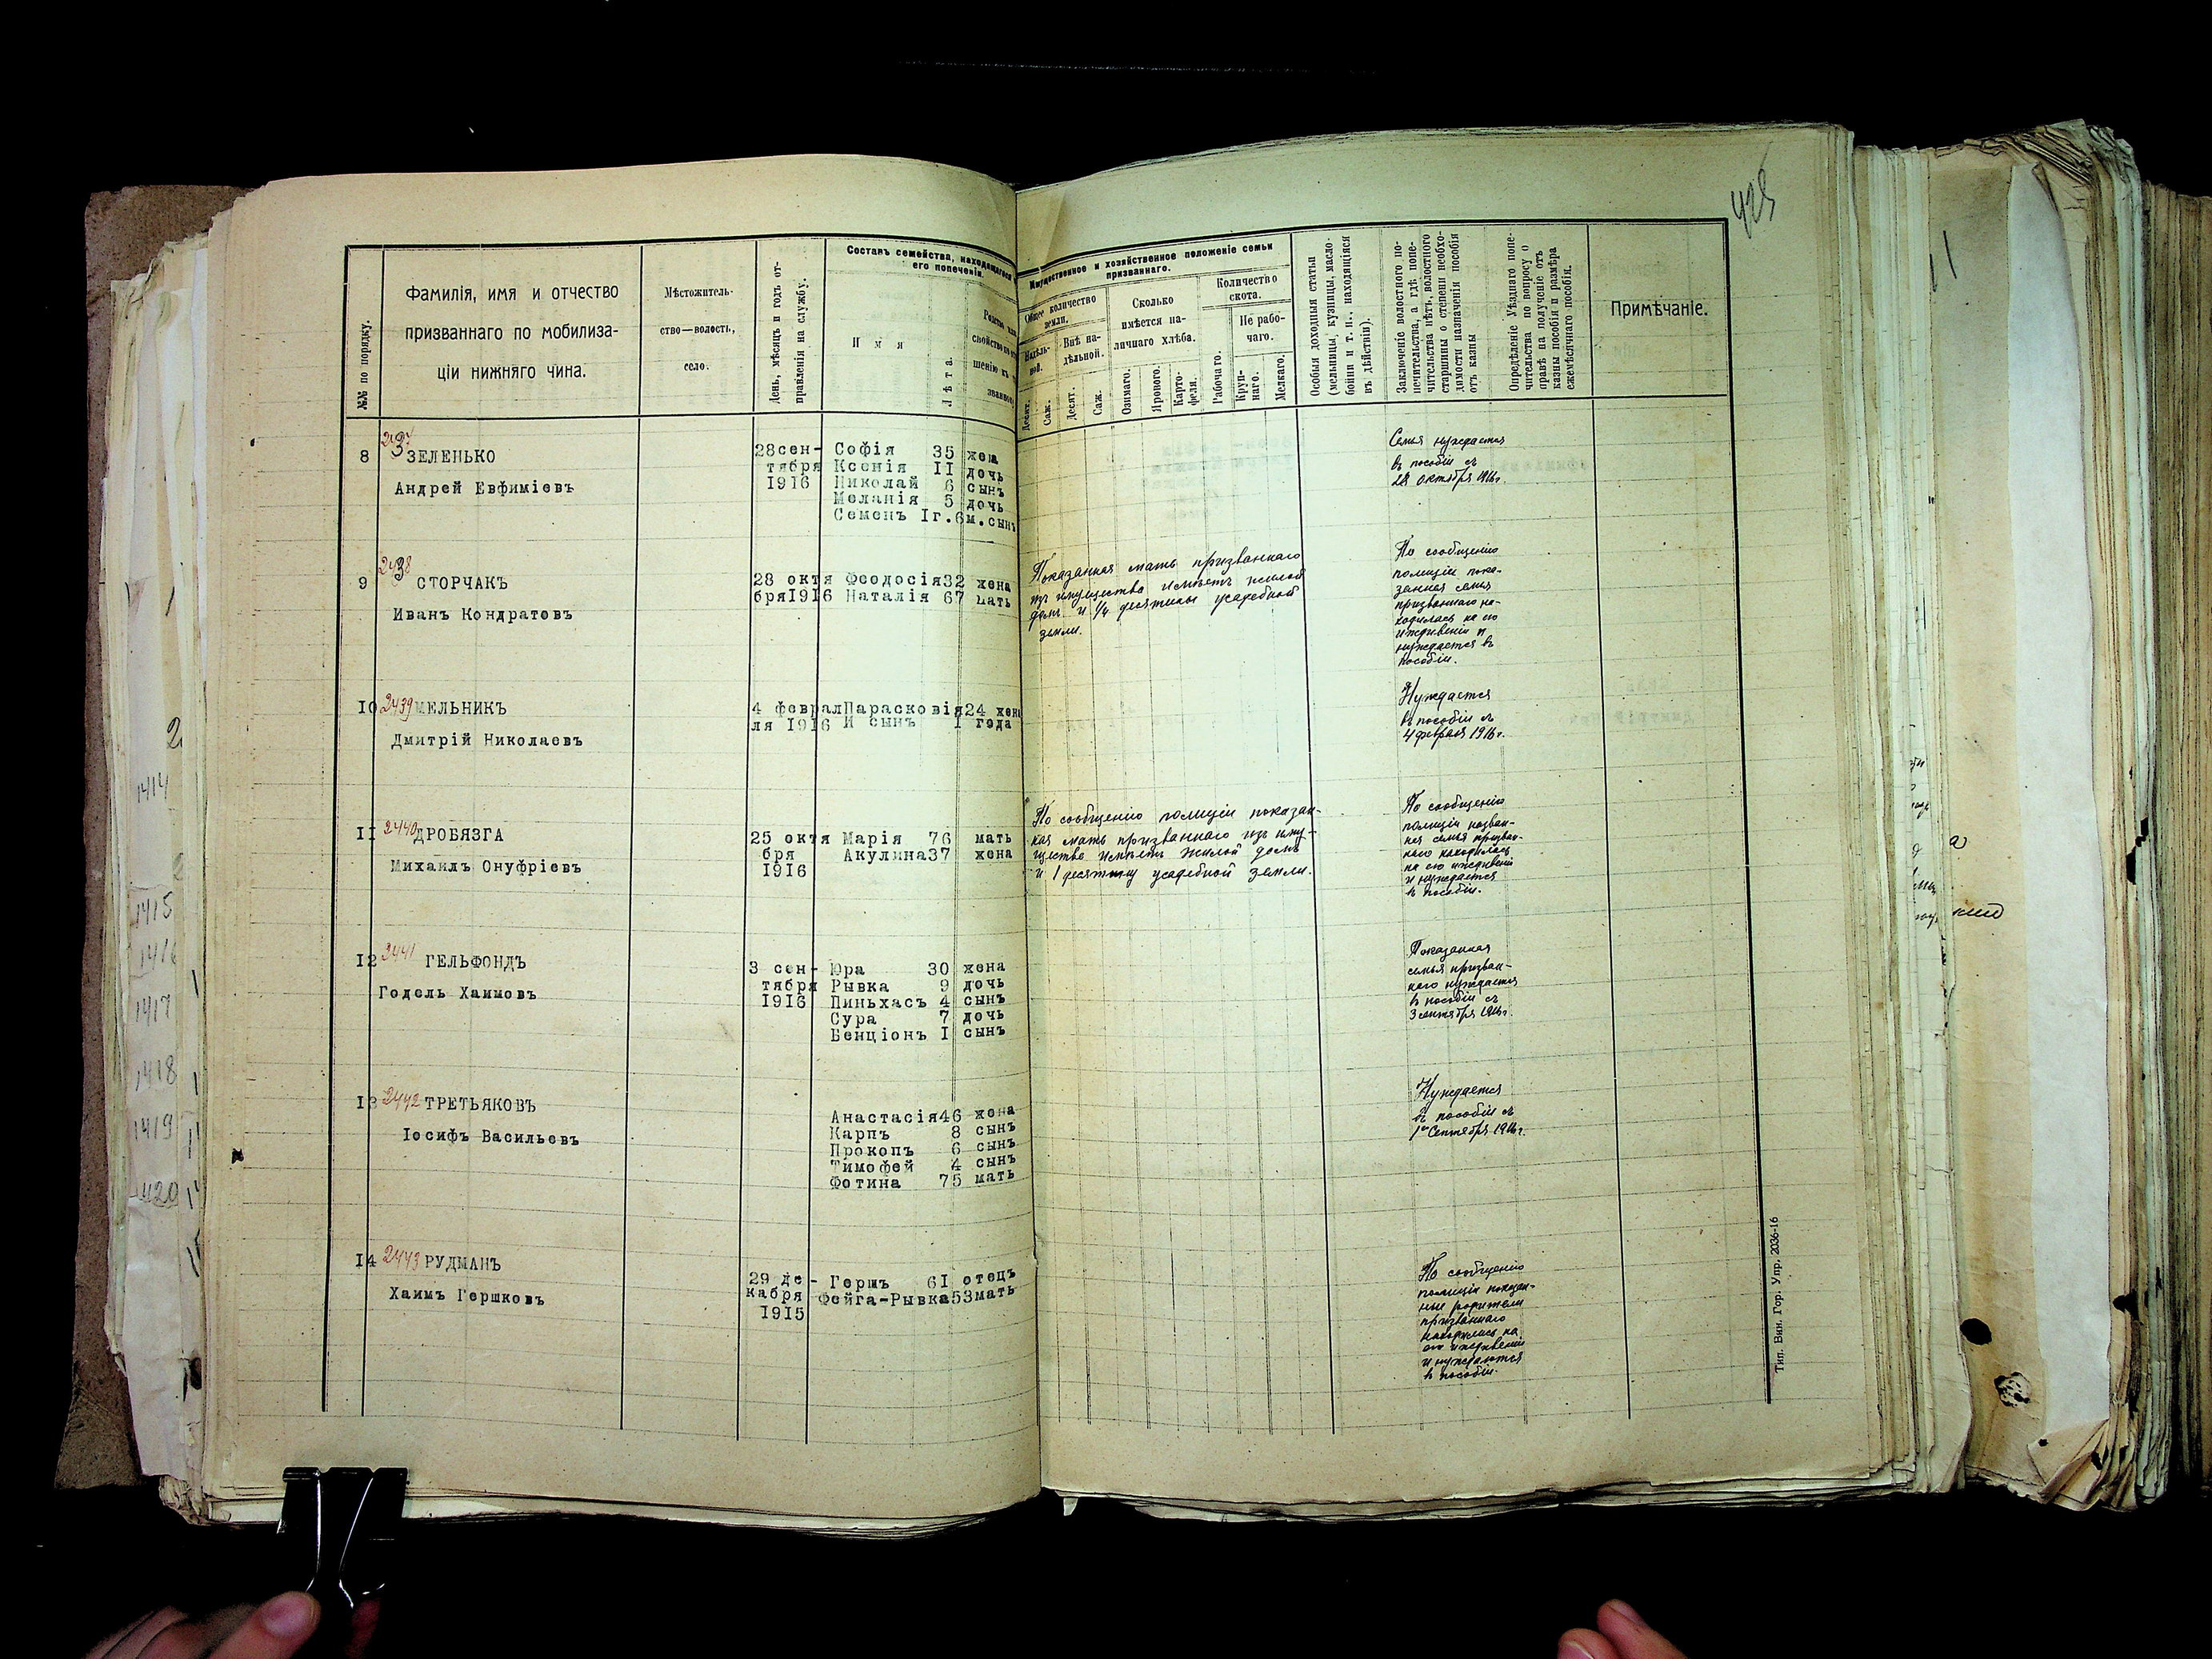 425
№№ по порядку.
Фамилія, имя и отчество
призваннаго по мобилиза-
ціи нижняго чина.
Мѣстожитель-
ство—волость,
село.
День, мѣсяцъ и годъ от-
правленія на службу.
Составъ семейства, находящагося
его попеченіи.
Имя
Лѣта.
Имущественное и хозяйственное положеніе семьи
призваннаго.
Общее количество
земли.
Надѣль-
ной.
Внѣ на-
дѣльной.
Десят.
Саж.
Десят.
Саж.
Сколько
имѣется на-
личнаго хлѣба.
Озимаго.
Ярового.
Карто-
феля.
Количество
скота.
Рабочаго.
Не рабо-
чаго.
Круп-
наго.
Мелкаго.
Особыя доходныя статьи
(мельницы, кузницы, масло-
бойни и т. п., находящіяся
въ дѣйствіи).
Заключеніе волостного по-
печительства, а гдѣ попе-
чительства нѣтъ, волостного
старшины о степени необхо-
димости назначенія пособія
отъ казны
Опредѣленіе Уѣзднаго попе-
чительства по вопросу о
правѣ на полученіе отъ
казны пособія и размѣра
ежемѣсячнаго пособія.
Примѣчаніе.
8 2437 ЗЕЛЕНЬКО
Андрей Евфиміевъ
28сен-
тября
1916
Софія 35 жена
Ксенія II дочь
Николай 6 сынъ
Меланія 5 дочь
Семенъ Iг.6м.сынъ
Семья нуждается
въ пособіи съ
28 октября 1916г.
9 2438 СТОРЧАКЪ
Иванъ Кондратовъ
28 октя
бря1916
Феодосія32 жена
Наталія 67 мать
Показанная мать призваннаго
изъ имущества имѣетъ жилой
домъ и 1/4 десятины усадебной
земли.
По сообщенію
полиціи пока-
занная семья
призваннаго на-
ходилась на его
иждивеніи и
нуждается въ
пособіи.
IO 2439 МЕЛЬНИКЪ
Дмитрій Николаевъ
4 феврал
ля 1916
Парасковія24 жена
И сынъ I года
Нуждается
въ пособіи съ
4 февраля 1916г.
II 2440 ДРОБЯЗГА
Михаилъ Онуфріевъ
25 октя
бря
1916
Марія 76 мать
Акулина37 жена
По сообщенію полиціи показан-
ная мать призваннаго изъ иму-
щества имѣетъ жилой домъ
и 1 десятину усадебной земли.
По сообщенію
полиціи назван-
ная семья призван-
наго находилась
на его иждивеніи
и нуждается
въ пособіи.
I2 2441 ГЕЛЬФОНДЪ
Годель Хаимовъ
3 сен-
тября
1916
Юра 30 жена
Рывка 9 дочь
Пиньхасъ 4 сынъ
Сура 7 дочь
Бенціонъ I сынъ
Показанная
семья призван-
наго нуждается
въ пособіи съ
3 сентября 1916г.
I3 2442 ТРЕТЬЯКОВЪ
Іосифъ Васильевъ
Анастасія46 жена
Карпъ 8 сынъ
Прокопъ 6 сынъ
Тимофей 4 сынъ
Фотина 75 мать
Нуждается
въ пособіи съ
1го Сентября 1916г.
I4 2443 РУДМАНЪ
Хаимъ Гершковъ
29 де-
кабря
1915
Гершъ 6I отецъ
Фейга-Рывка53мать
По сообщенію
полиціи показан-
ные родители
призваннаго
находились на
его иждивеніи
и нуждаются
въ пособіи.
Тип. Вин. Гор. Упр. 2036-16
2
1414
1415
1416
1417
1418
1419
1420